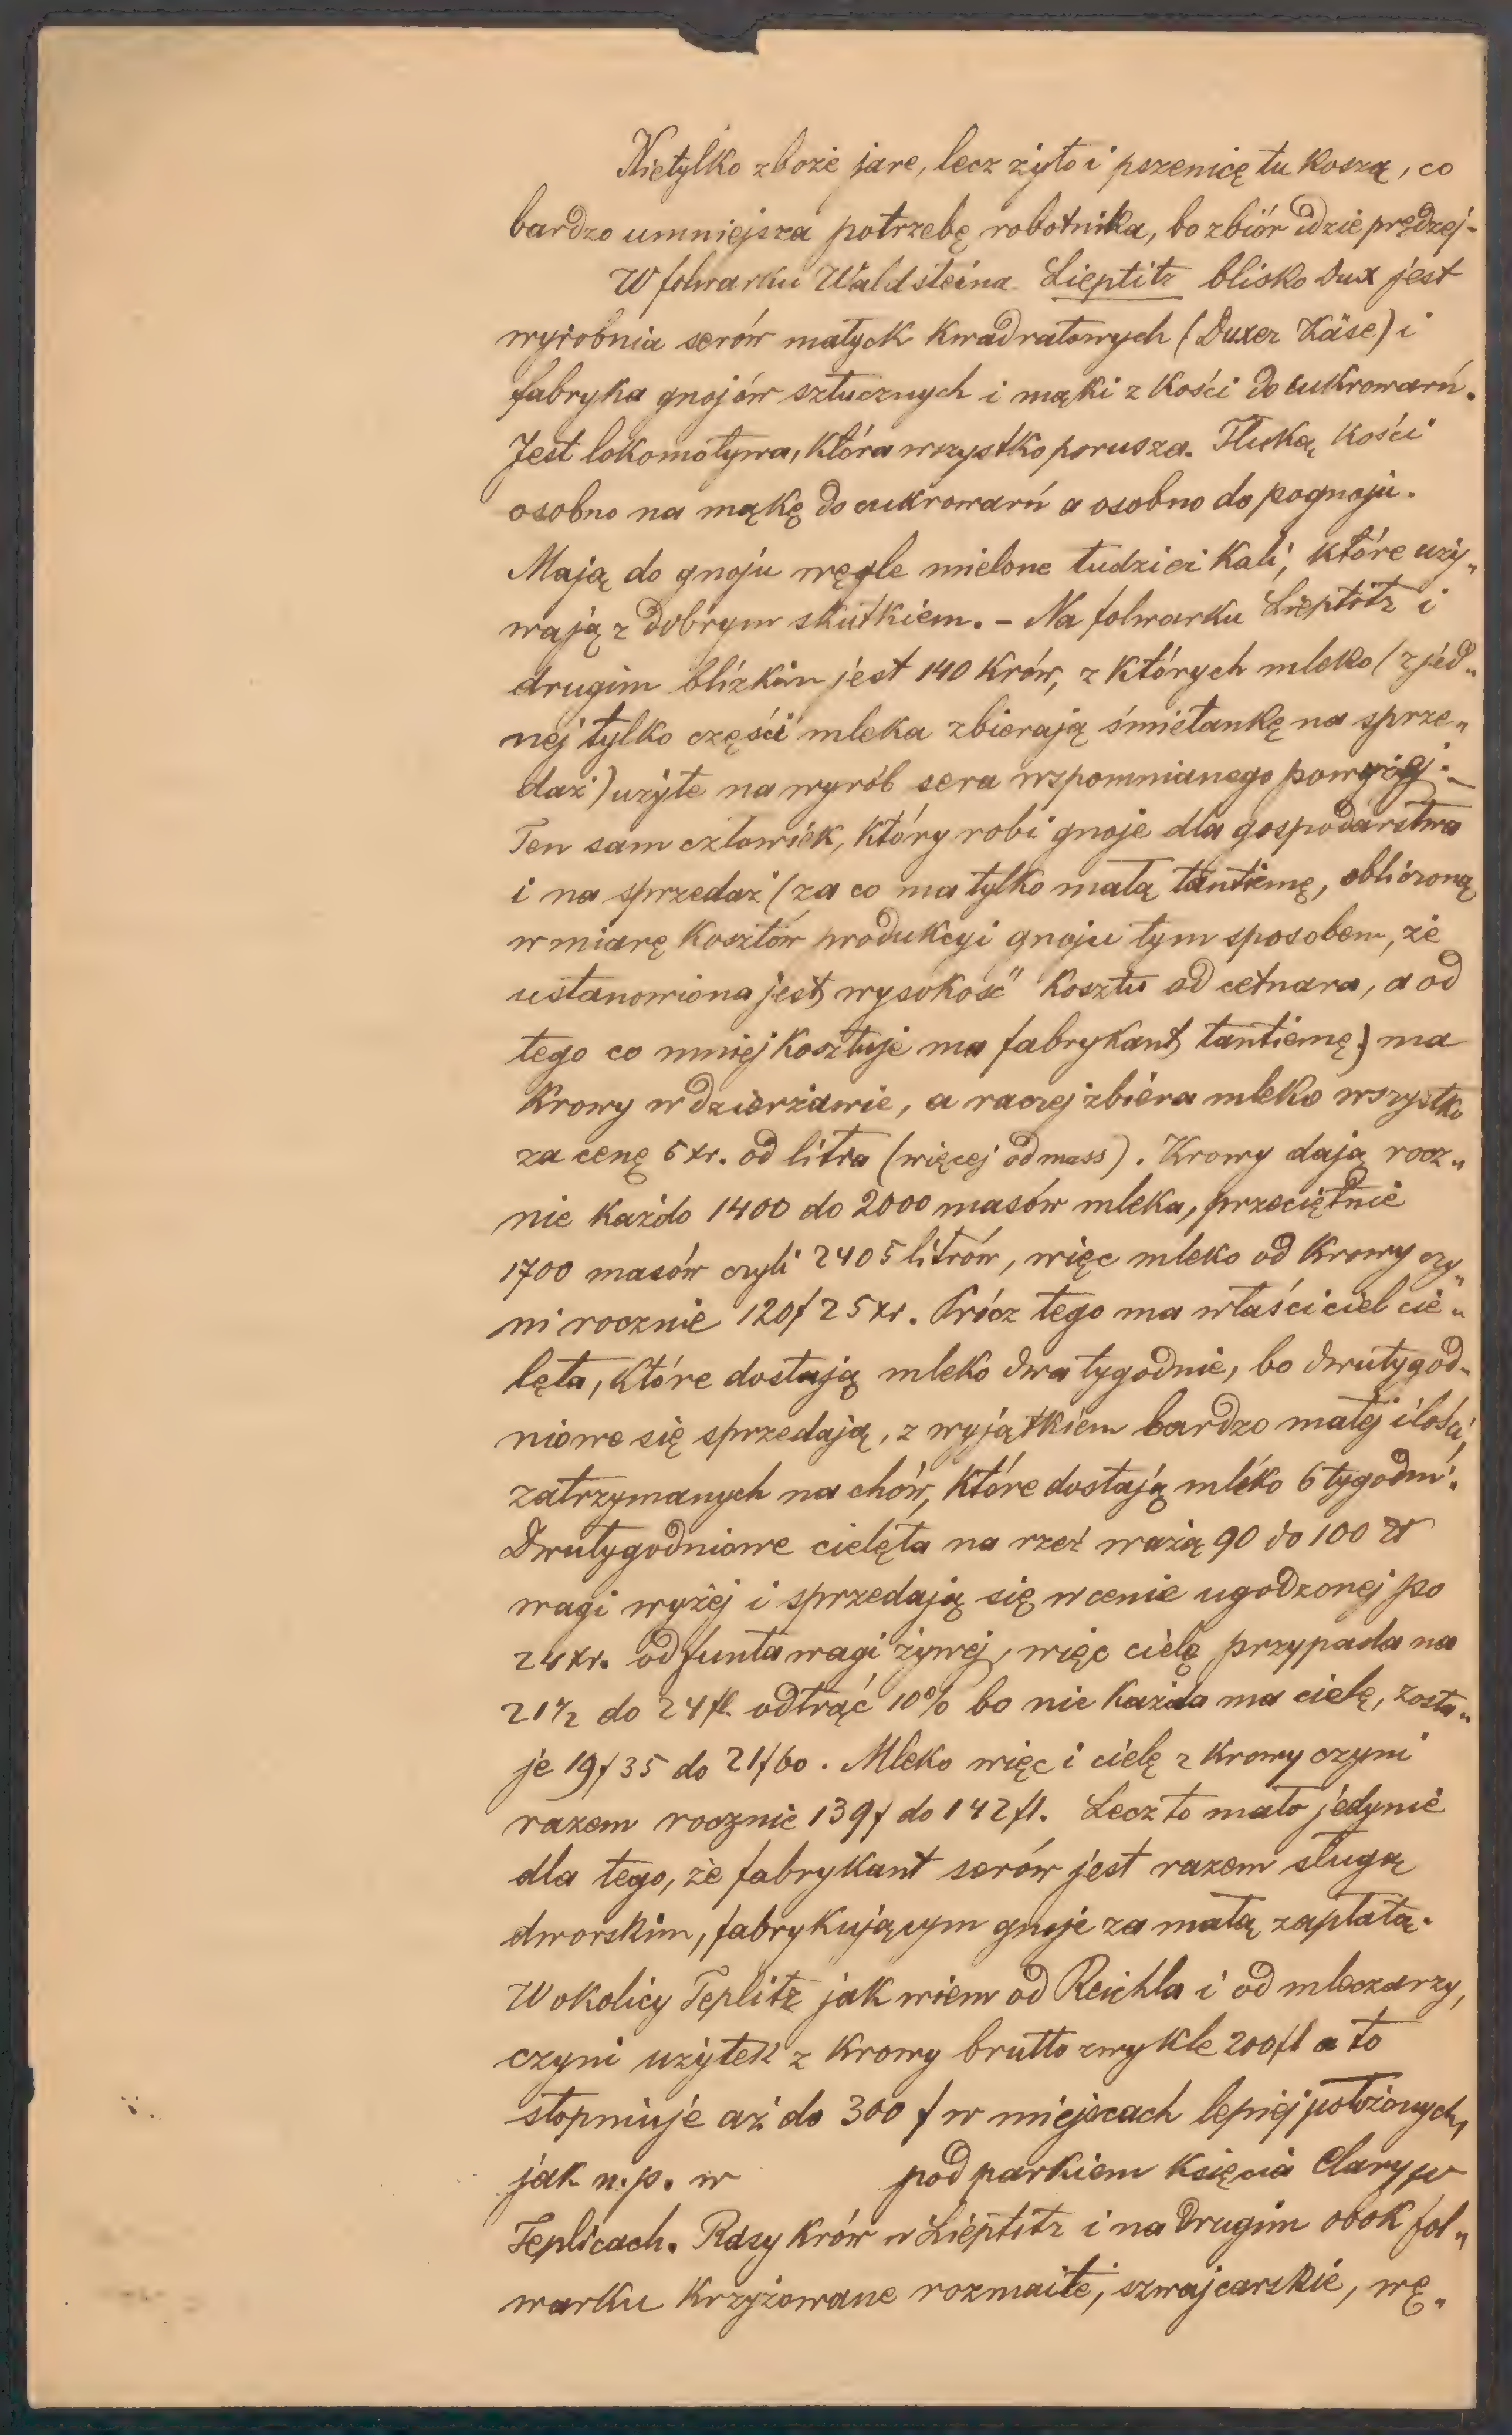 Nietylko zboże jare, lecz żyto i pszenicę tu koszą, co
bardzo umniejsza potrzebę robotnika, bo zbiór idzie prędzej.
W folwarku Waldsteina Lieptitz blisko Dux jest
wyrobnia serów małych kwadratowych (Duxer Käse) i
fabryka gnojów sztucznych i mąki z kości do cukrowarń.
Jest lokomotywa, która wszystko porusza. Tłuką kości
osobno na mąkę do cukrowarń a osobno do pognoju.
Mają do gnoju węgle mielone tudzież Kali, które uży„
wają z dobrym skutkiem. – Na folwarku Lieptitz i
drugim blízkim jest 140 krów, z których mleko (z jéd„
néj tylko części mleka zbierają śmietankę na sprze„
daż) użyte na wyrób sera wspomnianego powyżéj. –
Ten sam człowiek, który robi gnoje dla gospodarstwa
i na sprzedaż (za co ma tylko małą tantiemę, obliczoną
w miarę kosztów produkcyi gnoju tym sposobem, że
ustanowiona jest wysokość kosztu od cetnara, a od
tego co mniej kosztuje ma fabrykant tantiemę) ma
krowy w dzierżawie, a raczej zbiera mleko wszystko
za cenę 5 xr. od litra (więcej od mass). Krowy dają rocz„
nie każdo 1400 do 2000 masów mleka, przeciętnie
1700 masów czyli 2405 litrów, więc mleko od krowy czy„
ni rocznie 120f 25 xr. Prócz tego ma właściciel cie„
lęta, które dostają mleko dwa tygodnie, bo dwutygod„
niowe się sprzedają, z wyjątkiem bardzo małéj ilości,
zatrzymanych na chów, które dostają mléko 6 tygodni.
Dwutygodniowe cielęta na rzeź ważą 90 do 100 ℔
wagi wyżéj i sprzedają się w cenie ugodzonej po
24 xr. od funta wagi żywéj, więc cielę przypada na
21½ do 24 fl. odtrąć 10% bo nie każda ma cielę, zosta„
je 19f 35 do 21f 60. Mleko więc i cielę z krowy czyni
razem rocznie 139f do 142 fl. Lecz to mało jedynie
dla tego, że fabrykant serów jest razem sługą
dworskim, fabrykującym gnoje za małą zapłatą.
W okolicy Teplitz jak wiem od Reichla i od mleczarzy,
czyni użytek z krowy brutto zwykle 200 fl a to
stopniuje aż do 300 f w miejscach lepiéj położonych,
jak n.p. w pod parkiem księcia Clary w
Teplicach. Rasy krów w Lieptitz i na drugim obok fol„
warku krzyżowane rozmaite, szwajcarskie, wę„